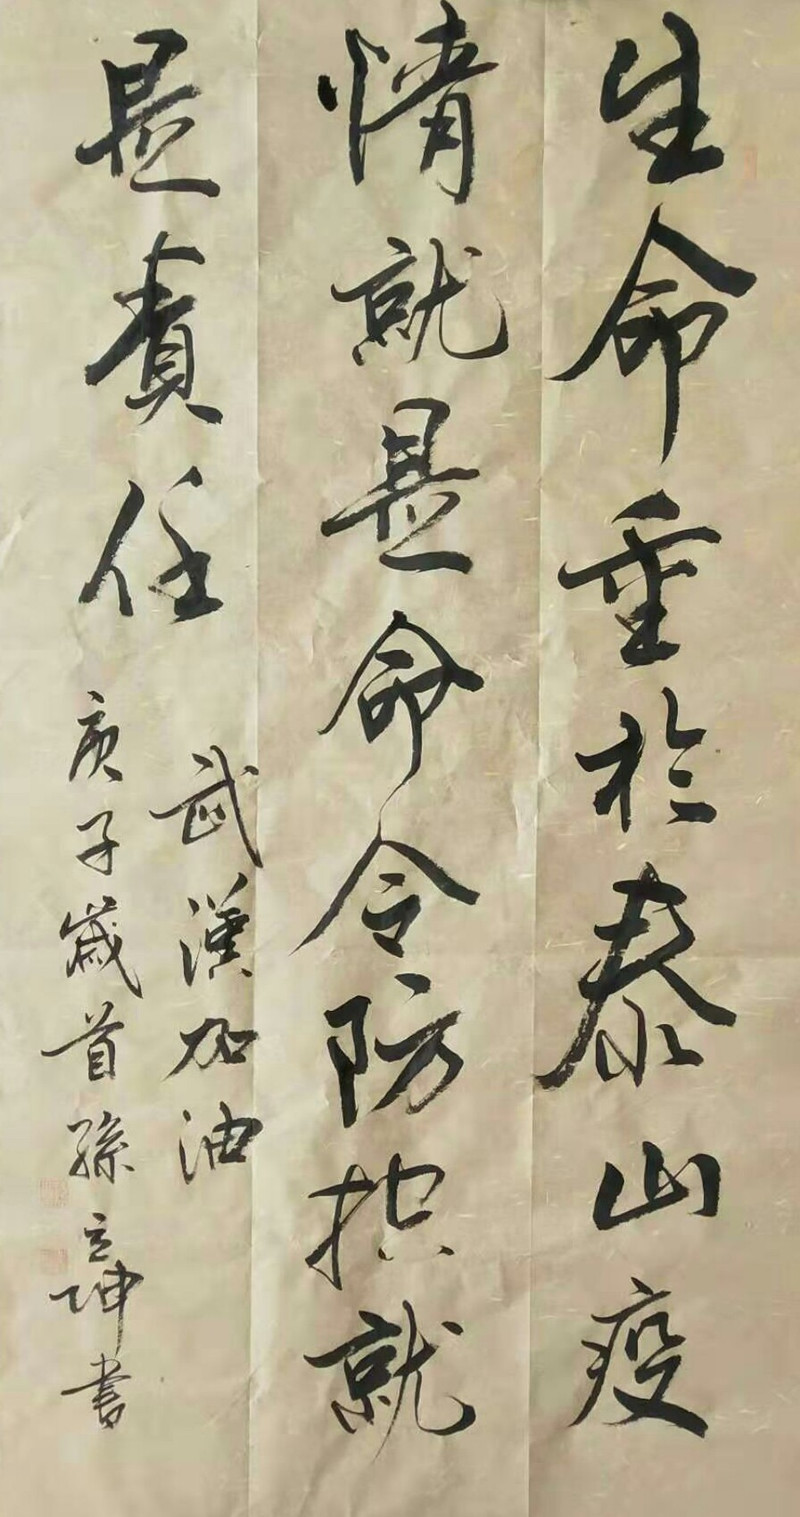 生命重於泰山疫
情就是命令防控就
是責任
武漢加油
庚子歲首孫立坤書